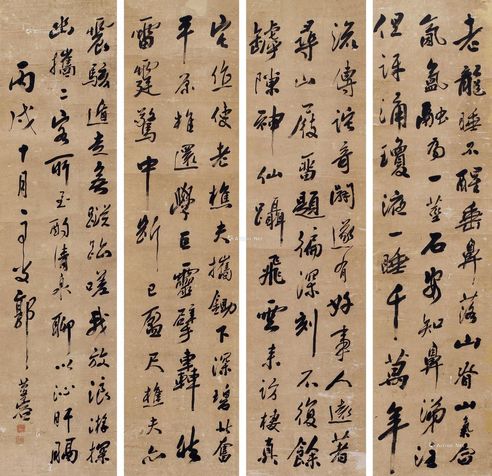 老龍睡不醒垂鼻落山脊山氣白
氤氳融而一蒸石安知鼻涕注
但訝涌瓊液一睡千萬年
流傳詫奇闢遂有好事人遠著
尋山屐留題徧深刻不復餘
罅隙神仙躡飛雲來訪棲真
宅並使老樵夫攜鋤下深碧
平原推還學巨靈擘轟然
雷霆驚中斷已盈尺樵夫亦
震駭遁走無蹤跡嗟我放浪游探
幽攜二客所至酌清泉聊以沁肝膈
丙戌十月